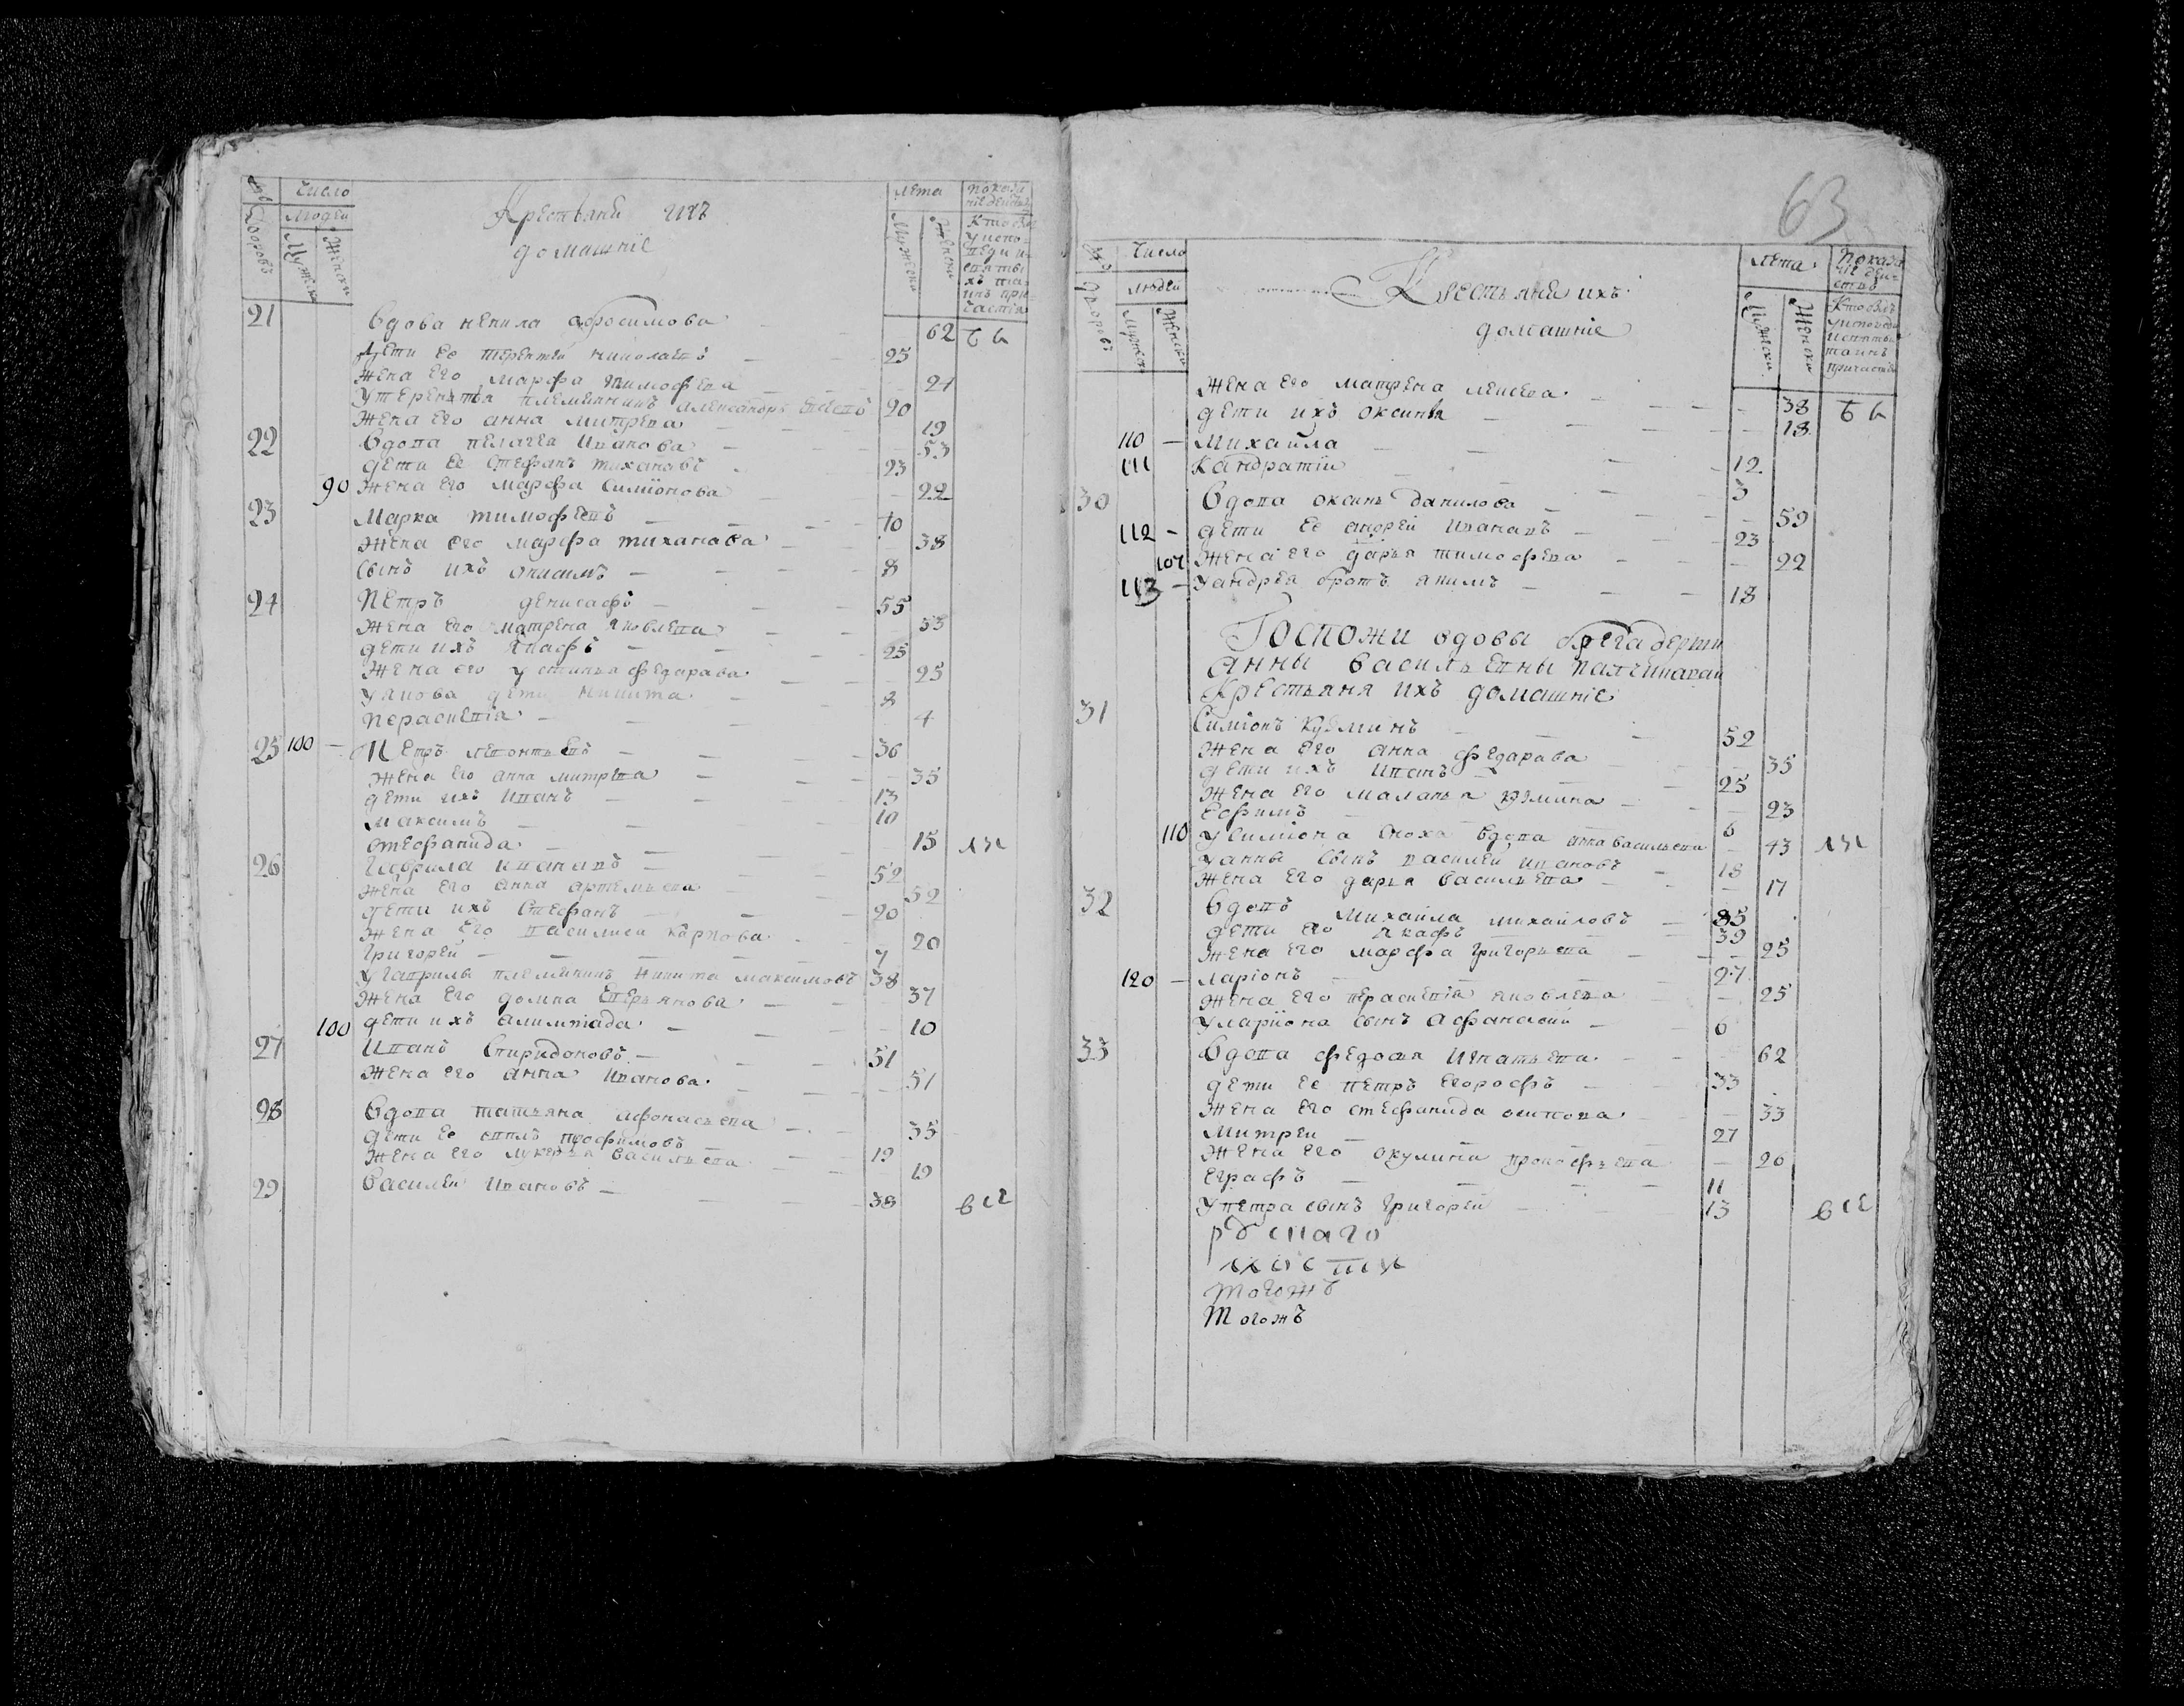 Число
Людей
Дворовъ
Мужеска
Женски
Крестьяне ихъ
домашніе
лета
Мужески
Женски
21 Вдова ненила афросимова 62
дети ее терентеи николаевъ 25
жена его марфа тимофеева 21
утерентья племянникъ александръ 20
жена его анна митрева 19
22 вдова пелагея иванова 53
дети ее стефанъ тихановъ 23
90 жена его марфа симионова 22
23 Марка тимофеевъ 40
жена его марфа тиханова 38
сынъ ихъ онисимъ 8
24 Петръ денисафъ 55
жена его матрена яковлева 53
дети ихъ якафъ 25
жена его устинья федарава 25
уякова дети никита 8
перасковія 4
25 100 Петръ левонтьевъ 36
жена его анна митрева 35
дети ихъ иванъ 13
максимъ 10
стефанида 15
26 Гаврила ивановъ 52
жена его анна артемьева 52
дети ихъ стефанъ 20
жена его василиса карпова 20
григорей 7
угаврилы племяникъ никита максимовъ 38
жена его домна 37
100 дети ихъ алимпіада 10
27 Иванъ спиридоновъ 51
жена его анна иванова 51
28 вдова татьяна афонасьева 35
дети ее трофимовъ 19
жена его лукерья васильева 19
29 Василей ивановъ 38 все
63
Число
людей
дворовъ
Мужески
Женски
Крестьяне ихъ
домашніе
лета
Мужески
Женски
жена его матрена 38
дети ихъ оксинья 18
110 Михайла 12
111 Кандратіи 3
30 вдова оксинья данилова 59
112 дети ее андрей ивановъ 23
107 жена его дарья тимофева 22
113 уандрея братъ якимъ 18
Госпожи вдовы брегадерши
Анны васильевны
Крестьяня ихъ домашніе
31 Симіонъ кузминъ 52
жена его анна федарава 35
дети ихъ иванъ 25
жена его маланья кузмина 23
ефимъ 6
110 усиміона сноха вдова анна васильева 43
уанны сынъ василей ивановъ 18
жена его дарья васильева 17
32 вдовъ михайла михайловъ 85
дети его якафъ 39
жена его марфа григорьева 25
120 ларіонъ 27
жена его перасковія яковлева 25
уларіона сынъ афанасий 6
33 вдова федосья игнатьева 62
дети ее петръ егорафъ 33
жена его стефанида осипова 33
митреи 27
жена его окулина прокофьева 26
еграфъ 11
упетра сынъ григорей 13 все
тогожъ
тогожъ